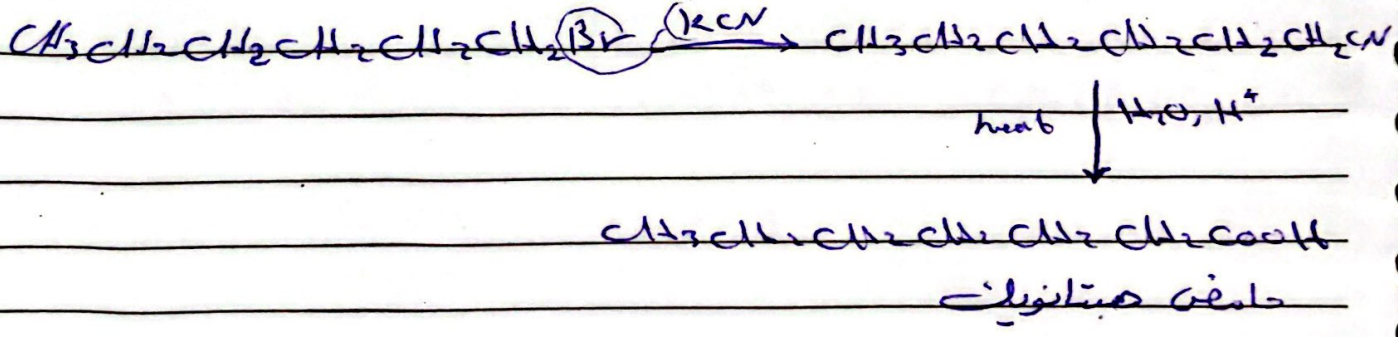 CH3CH2CH2CH2CH2CH2Br KCN → CH3CH2CH2CH2CH2CH2CN
heat ↓ H2O, H+
CH3CH2CH2CH2CH2CH2COOH
حامض هبتانويك